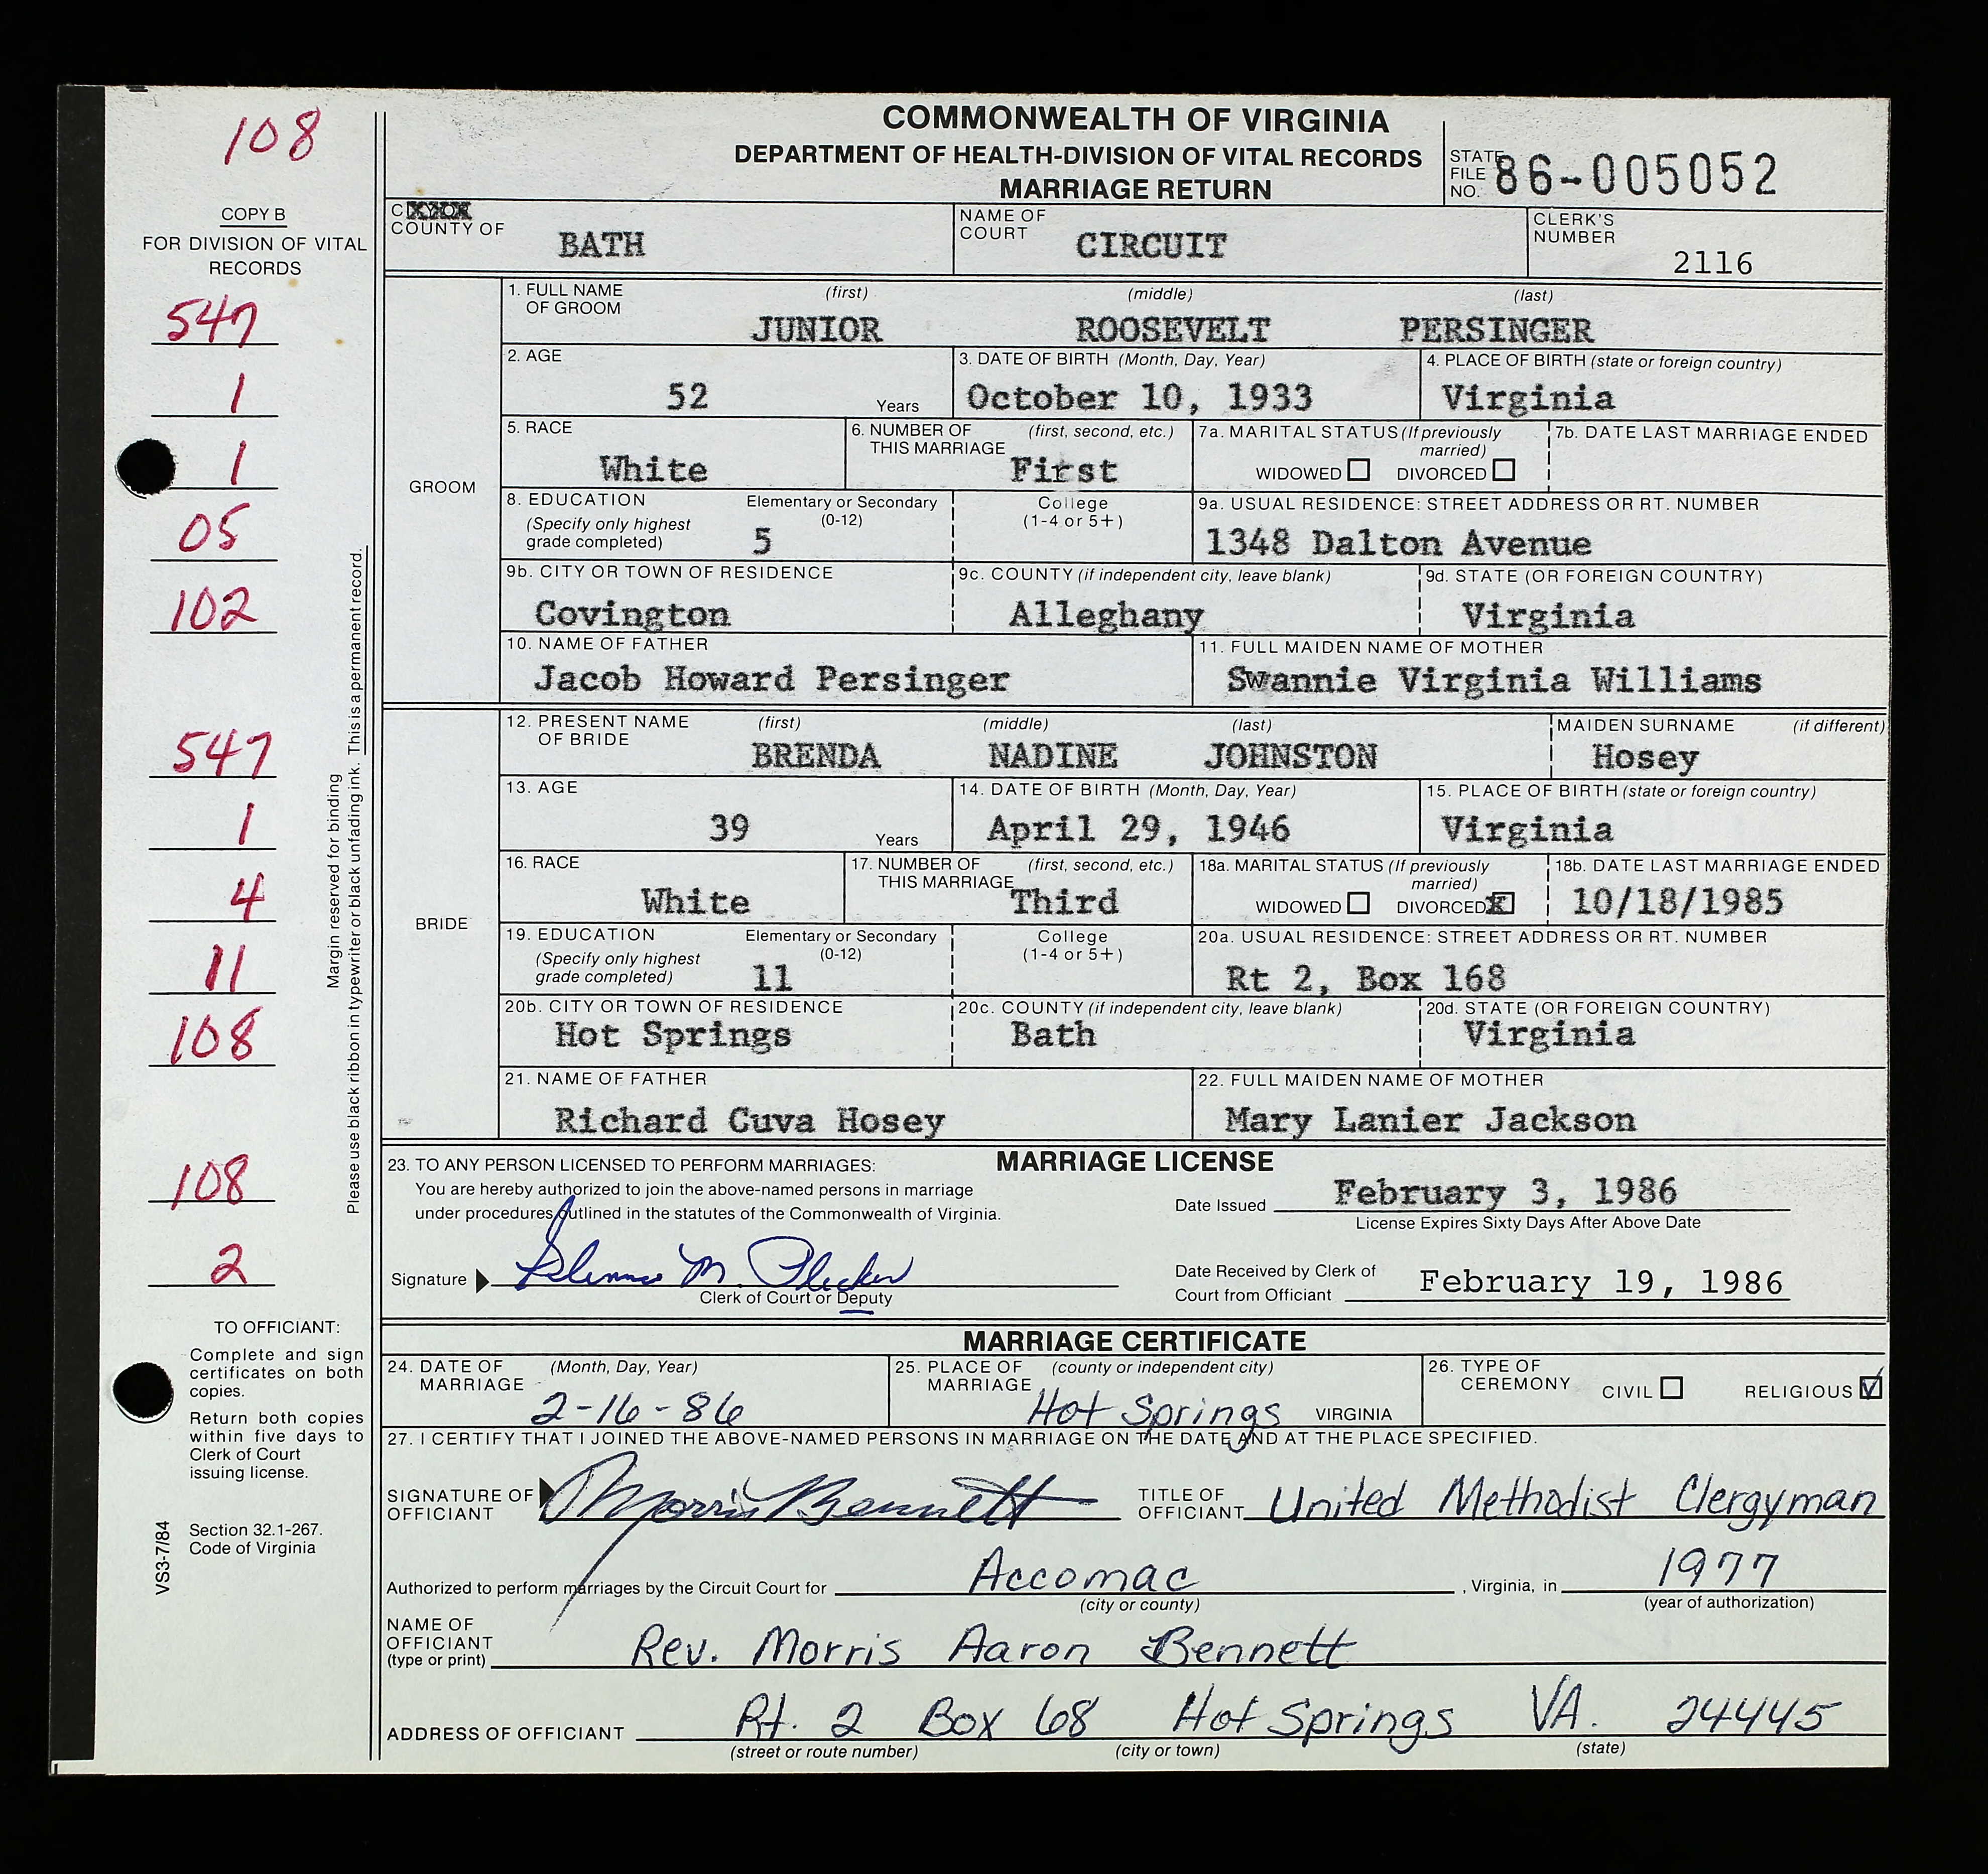 108
COPY B
FOR DIVISION OF VITAL
RECORDS
547
1
1
05
102
547
1
4
11
108
108
2
Margin reserved for binding
Please use black ribbon in typewriter or black unfading ink. This is a permanent record.
TO OFFICIANT:
Complete and sign
certificates on both
copies.
Return both copies
within five days to
Clerk of Court
issuing license.
Section 32.1-267.
Code of Virginia
VS3-7/84
COMMONWEALTH OF VIRGINIA
DEPARTMENT OF HEALTH-DIVISION OF VITAL RECORDS
MARRIAGE RETURN
STATE FILE NO. 86-005052
COUNTY OF BATH
NAME OF COURT CIRCUIT
CLERK'S NUMBER 2116
GROOM
1. FULL NAME OF GROOM (first) (middle) (last)
JUNIOR ROOSEVELT PERSINGER
2. AGE 52 Years
3. DATE OF BIRTH (Month, Day, Year) October 10, 1933
4. PLACE OF BIRTH (state or foreign country) Virginia
5. RACE White
6. NUMBER OF THIS MARRIAGE (first, second, etc.) First
7a. MARITAL STATUS (If previously married) WIDOWED DIVORCED
7b. DATE LAST MARRIAGE ENDED
8. EDUCATION (Specify only highest grade completed) Elementary or Secondary (0-12) 5 College (1-4 or 5+)
9a. USUAL RESIDENCE: STREET ADDRESS OR RT. NUMBER 1348 Dalton Avenue
9b. CITY OR TOWN OF RESIDENCE Covington
9c. COUNTY (if independent city, leave blank) Alleghany
9d. STATE (OR FOREIGN COUNTRY) Virginia
10. NAME OF FATHER Jacob Howard Persinger
11. FULL MAIDEN NAME OF MOTHER Swannie Virginia Williams
BRIDE
12. PRESENT NAME OF BRIDE (first) (middle) (last) MAIDEN SURNAME (if different)
BRENDA NADINE JOHNSTON Hosey
13. AGE 39 Years
14. DATE OF BIRTH (Month, Day, Year) April 29, 1946
15. PLACE OF BIRTH (state or foreign country) Virginia
16. RACE White
17. NUMBER OF THIS MARRIAGE (first, second, etc.) Third
18a. MARITAL STATUS (If previously married) WIDOWED DIVORCED X
18b. DATE LAST MARRIAGE ENDED 10/18/1985
19. EDUCATION (Specify only highest grade completed) Elementary or Secondary (0-12) 11 College (1-4 or 5+)
20a. USUAL RESIDENCE: STREET ADDRESS OR RT. NUMBER Rt 2, Box 168
20b. CITY OR TOWN OF RESIDENCE Hot Springs
20c. COUNTY (if independent city, leave blank) Bath
20d. STATE (OR FOREIGN COUNTRY) Virginia
21. NAME OF FATHER Richard Cuva Hosey
22. FULL MAIDEN NAME OF MOTHER Mary Lanier Jackson
MARRIAGE LICENSE
23. TO ANY PERSON LICENSED TO PERFORM MARRIAGES:
You are hereby authorized to join the above-named persons in marriage
under procedures outlined in the statutes of the Commonwealth of Virginia.
Date Issued February 3, 1986
License Expires Sixty Days After Above Date
Signature M. Plecker
Clerk of Court or Deputy
Date Received by Clerk of Court from Officiant February 19, 1986
MARRIAGE CERTIFICATE
24. DATE OF MARRIAGE (Month, Day, Year) 2-16-86
25. PLACE OF MARRIAGE (county or independent city) Hot Springs VIRGINIA
26. TYPE OF CEREMONY CIVIL RELIGIOUS ✓
27. I CERTIFY THAT I JOINED THE ABOVE-NAMED PERSONS IN MARRIAGE ON THE DATE AND AT THE PLACE SPECIFIED.
SIGNATURE OF OFFICIANT Morris Bennett
TITLE OF OFFICIANT United Methodist Clergyman
Authorized to perform marriages by the Circuit Court for Accomac, Virginia, in 1977
(city or county) (year of authorization)
NAME OF OFFICIANT (type or print) Rev. Morris Aaron Bennett
ADDRESS OF OFFICIANT Rt. 2 Box 68 Hot Springs VA. 24445
(street or route number) (city or town) (state)